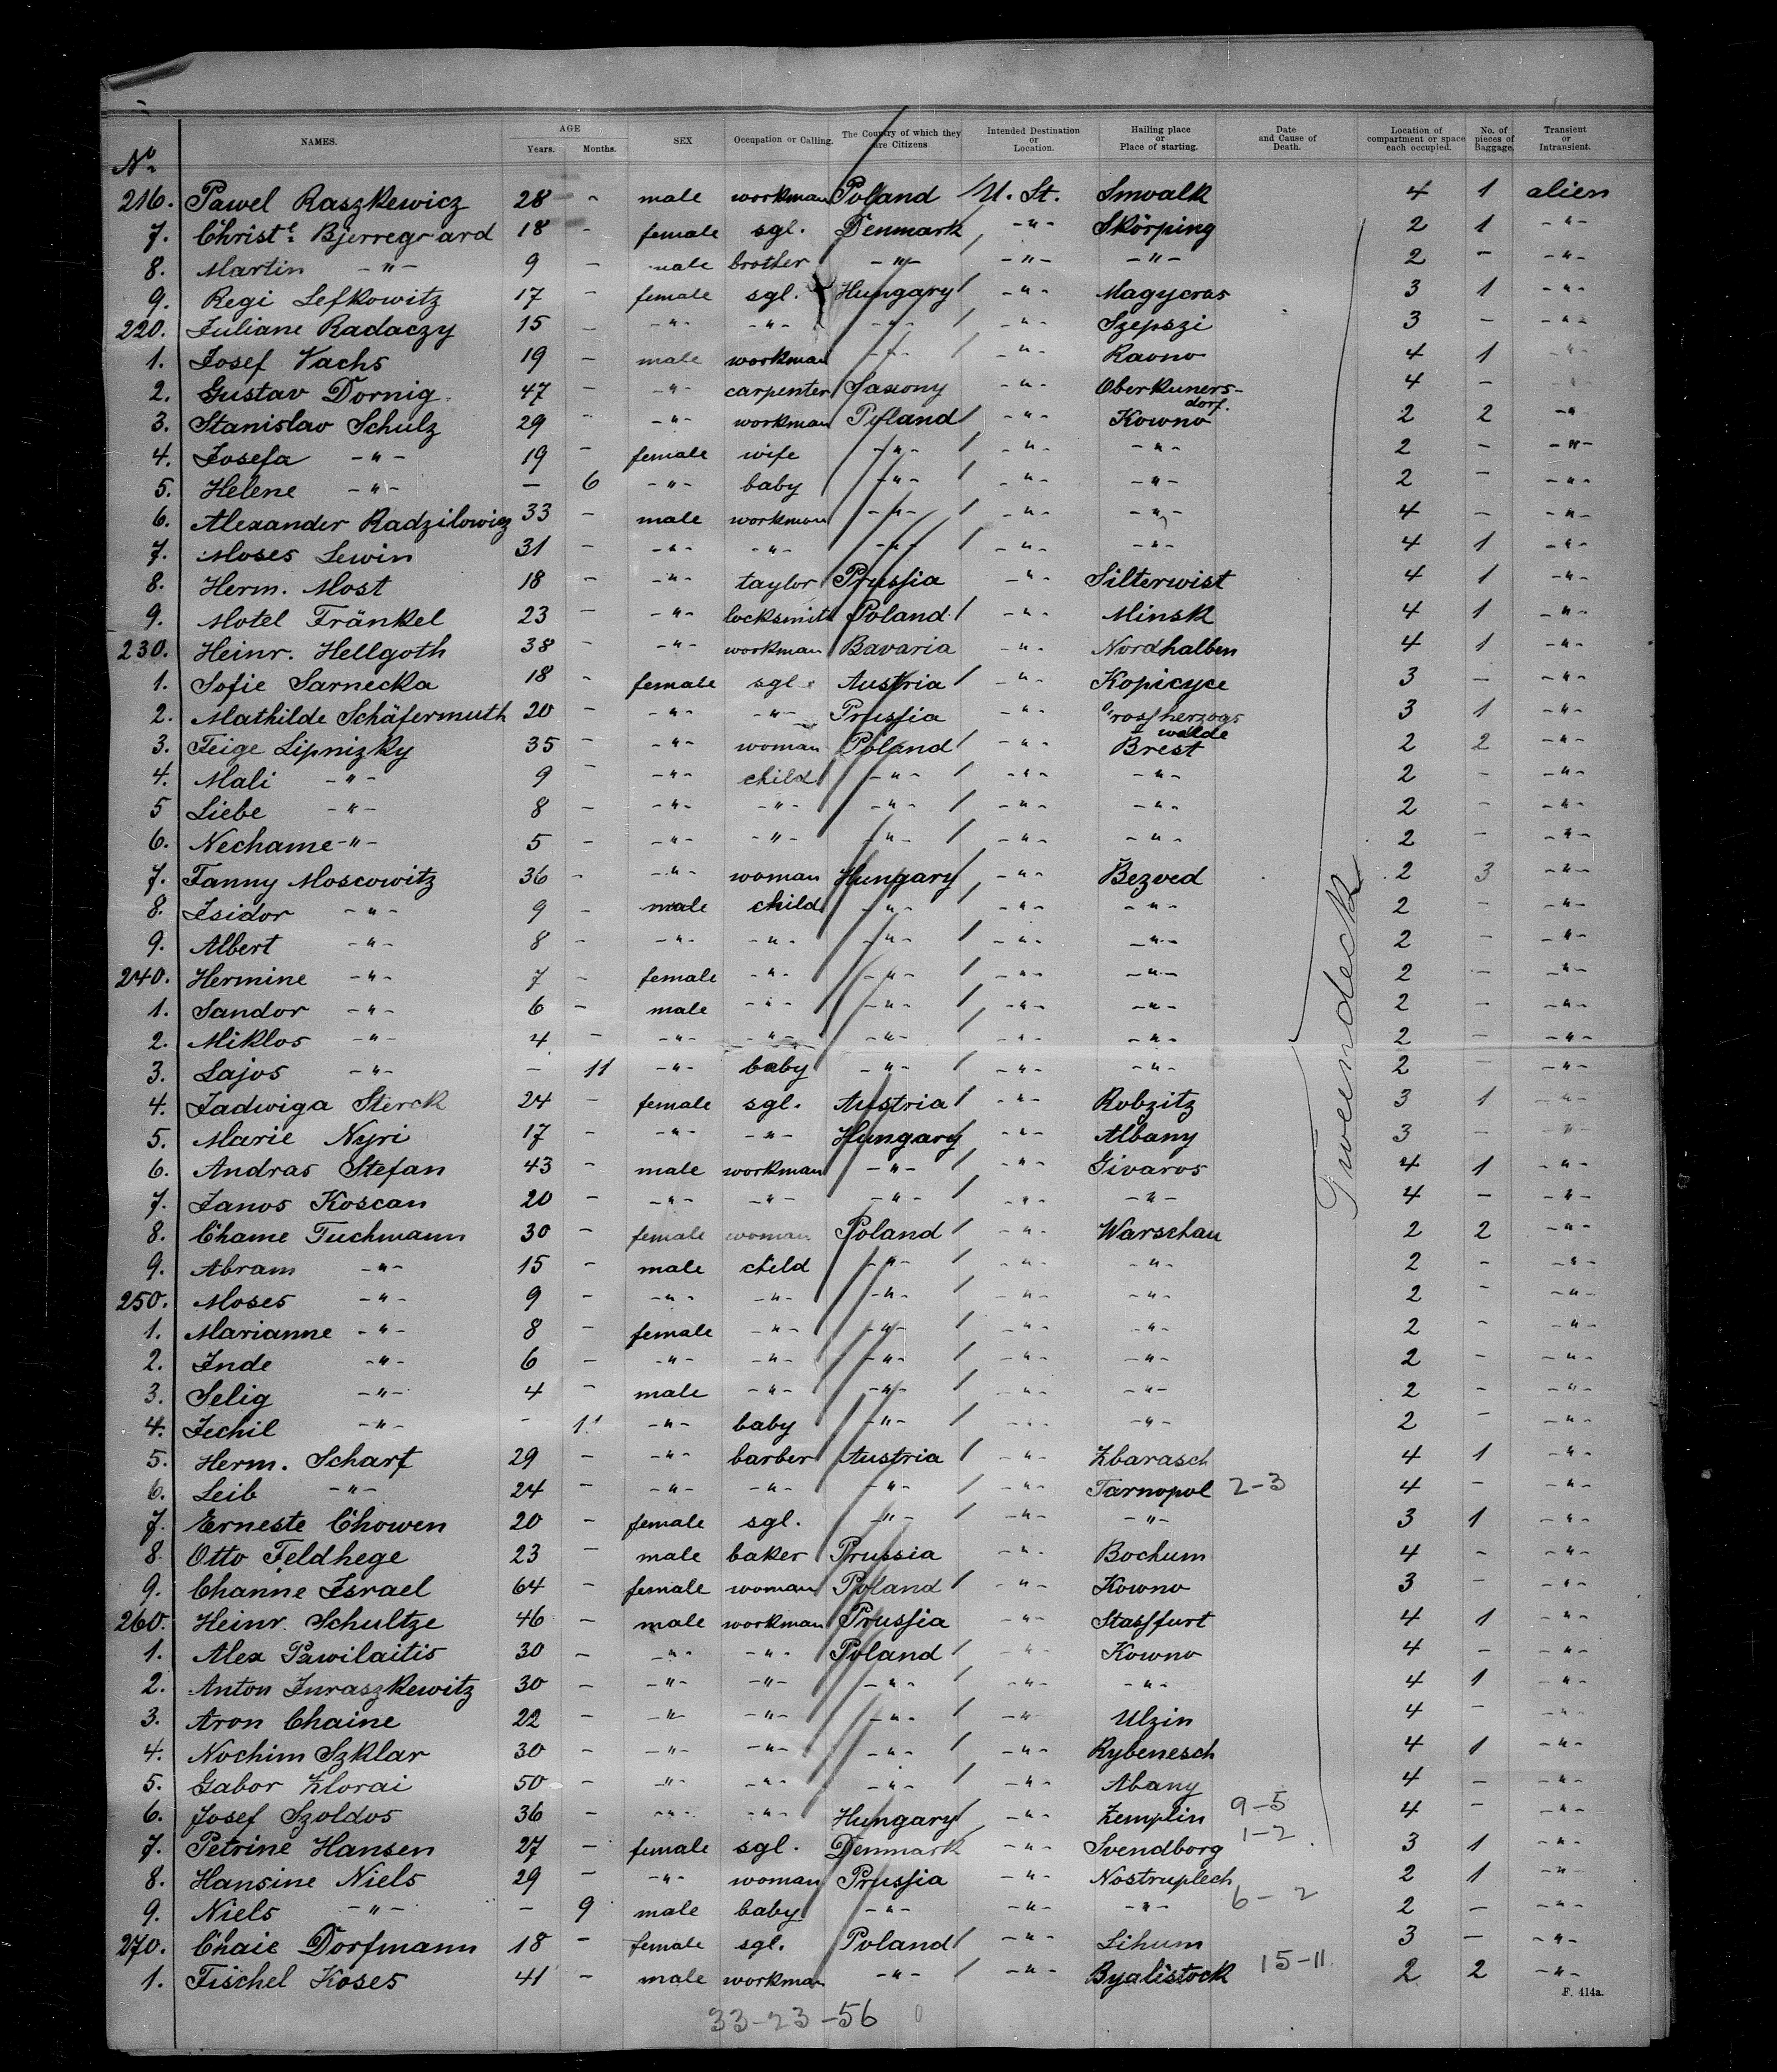 NAMES. AGE Years. Months. SEX Occupation or Calling. The Country of which they are Citizens Intended Destination or Location. Hailing place or Place of starting. Date and Cause of Death. Location of compartment or space each occupied. No. of pieces of Baggage. Transient or Intransient.
No
216. Pawel Raszkewicz 28 - male workman Poland U. St. Suwalk 4 1 alien
7. Christe. Bjerregaard 18 - female sgl. Denmark -"- Skörping 2 1 -"-
8. Martin -"- 9 - male brother -"- -"- -"- 2 - -"-
9. Regi Lefkowitz 17 - female sgl. Hungary -"- Magycras 3 1 -"-
220. Juliane Radaczy 15 - -"- -"- -"- -"- Szepszi 3 - -"-
1. Josef Vachs 19 - male workman -"- -"- Raono 4 1 -"-
2. Gustav Dornig 47 - -"- carpenter Saxony -"- Oberkuners-dorf. 4 - -"-
3. Stanislav Schulz 29 - -"- workman Poland -"- Kowno 2 2 -"-
4. Josefa -"- 19 - female wife -"- -"- -"- 2 - -"-
5. Helene -"- - 6 -"- baby -"- -"- -"- 2 - -"-
6. Alexander Radzilowicz 33 - male workman -"- -"- -"- 4 - -"-
7. Moses Lewin 31 - -"- -"- -"- -"- -"- 4 1 -"-
8. Herm. Most 18 - -"- taylor Prussia -"- Silterwist 4 1 -"-
9. Motel Fränkel 23 - -"- locksmith Poland -"- Minsk 4 1 -"-
230. Heinr. Hellgoth 38 - -"- workman Bavaria -"- Nordhalben 4 1 -"-
1. Sofie Sarnecka 18 - female sgl. Austria -"- Kopicyce 3 - -"-
2. Mathilde Schäfermuth 20 - -"- -"- Prussia -"- Grossherzogs walde 3 1 -"-
3. Feige Lipnizky 35 - -"- woman Poland -"- Brest 2 2 -"-
4. Mali -"- 9 - -"- child -"- -"- -"- 2 - -"-
5 Liebe -"- 8 - -"- -"- -"- -"- -"- 2 - -"-
6. Nechame -"- 5 - -"- -"- -"- -"- -"- 2 - -"-
7. Fanny Moscowitz 36 - -"- woman Hungary -"- Bezved 2 3 -"-
8. Isidor -"- 9 - male child -"- -"- -"- 2 - -"-
9. Albert -"- 8 - -"- -"- -"- -"- -"- 2 - -"-
240. Hermine -"- 7 - female -"- -"- -"- -"- 2 - -"-
1. Sandor -"- 6 - male -"- -"- -"- -"- 2 - -"-
2. Miklos -"- 4 - -"- -"- -"- -"- -"- 2 - -"-
3. Lajos -"- - 11 -"- baby -"- -"- -"- 2 - -"-
4. Jadwiga Sterck 24 - female sgl. Austria -"- Robzitz 3 1 -"-
5. Marie Nyri 17 - -"- -"- Hungary -"- Albany 3 - -"-
6. Andras Stefan 43 - male workman -"- -"- Givaros 4 1 -"-
7. Janos Koscan 20 - -"- -"- -"- -"- -"- 4 - -"-
8. Chame Tuchmann 30 - female woman Poland -"- Warschau 2 2 -"-
9. Abram -"- 15 - male child -"- -"- -"- 2 - -"-
250. Moses -"- 9 - -"- -"- -"- -"- -"- 2 - -"-
1. Marianne -"- 8 - female -"- -"- -"- -"- 2 - -"-
2. Inde -"- 6 - -"- -"- -"- -"- -"- 2 - -"-
3. Selig -"- 4 - male -"- -"- -"- -"- 2 - -"-
4. Jechil -"- - 11 -"- baby -"- -"- -"- 2 - -"-
5. Herm. Scharf 29 - -"- barber Austria -"- Zbarasch 4 1 -"-
6. Leib -"- 24 - -"- -"- -"- -"- Tarnopol 2-3 4 - -"-
7. Erneste Chowen 20 - female sgl. -"- -"- -"- 3 1 -"-
8. Otto Feldhege 23 - male baker Prussia -"- Bochum 4 - -"-
9. Channe Israel 64 - female woman Poland -"- Kowno 3 - -"-
260. Heinr. Schultze 46 - male workman Prussia -"- Stassfurt 4 1 -"-
1. Alex Pawilaitis 30 - -"- -"- Poland -"- Kowno 4 - -"-
2. Anton Juraszkewitz 30 - -"- -"- -"- -"- -"- 4 1 -"-
3. Aron Chaine 22 - -"- -"- -"- -"- Ulzin 4 - -"-
4. Nochim Szklar 30 - -"- -"- -"- -"- Rybenesch 4 1 -"-
5. Gabor Zlorai 50 - -"- -"- -"- -"- Abany 4 - -"-
6. Josef Szoldos 36 - -"- -"- Hungary -"- Zemplin 9-5 4 - -"-
7. Petrine Hansen 27 - female sgl. Denmark -"- Svendborg 1-2 3 1 -"-
8. Hansine Niels 29 - -"- woman Prussia -"- Nostruplech 2 1 -"-
9. Niels -"- - 9 male baby -"- -"- -"- 6-2 2 - -"-
270. Chaie Dorfmann 18 - female sgl. Poland -"- Lihum 3 - -"-
1. Fischel Koses 41 - male workman -"- -"- Byalistock 15-11 2 2 -"-
Tweendeck
F. 414a.
33-23-56